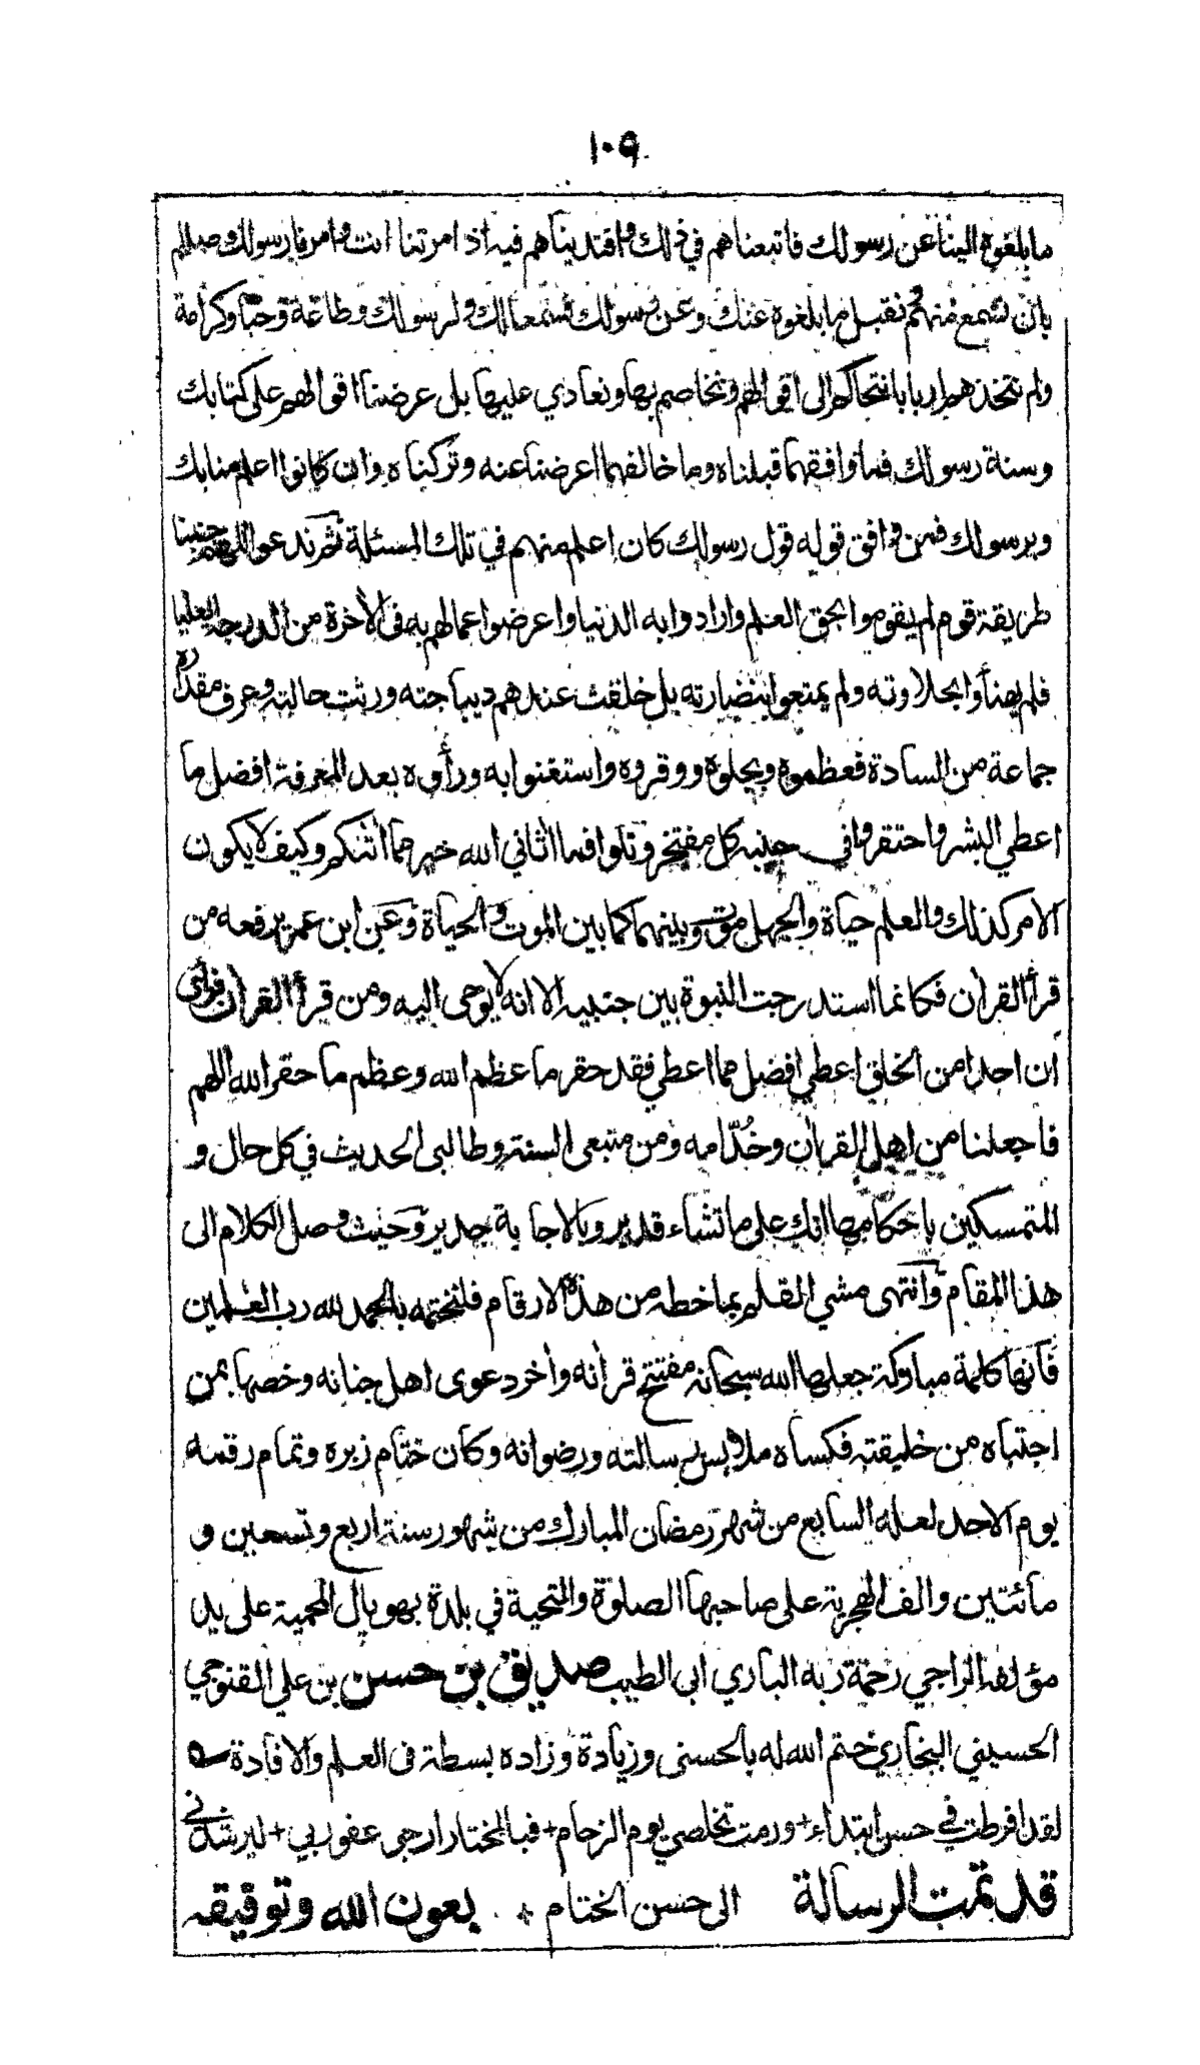 ١٠٩
ما بلغوه الينا عن رسولك فاتبعناهم في ذلك واقتديناهم فيه اذ امرتنا انت وامرنا رسولك وصلم
بان نسمع منهم ونقبل ما بلغوه عنك وعن رسولك فسمعا لك ولرسولك وطاعة وحبا وكرامة
ولم نتخذهم اربابا نتحاكم الى اقوالهم ونخاصم بها ونعادي عليها بل عرضنا اقوالهم على كتابك
وسنة رسولك فما وافقهما قبلناه وما خالفهما اعرضنا عنه وتركناه وان كانوا اعلم منا بك
وبرسولك فمن وافق قوله قول رسولك كان اعلم منهم في تلك المسئلة ثم ندعو اللهم جنبنا
طريقة قوم لم يقوموا بحق العلم وارادوا به الدنيا واعرضوا عما لهم به فى الأخرة من الدرجة العليا
فلم يهنأوا بحلاوته ولم يمتعوا بنضارته بل خلقت عندهم ديباجته ورثت حالته وعرف مقداره
جماعة من السادة فعظموه وبجلوه ووقروه واستغنوا به ورأوه بعد المعرفة افضل ما
اعطي البشر واحتقروا في جنبه كل مفتخر وتلوا فما أتاني الله خير مما أتكم وكيف لا يكون
الامر كذلك والعلم حياة والجهل موت وبينهما كما بين الموت والحياة وعن ابن عمر يرفعه من
قرأ القرأن فكانما استدرجت النبوة بين جنبيه الا انه لا يوحى اليه ومن قرأ القرأن فرأى
ان احدا من الخلق اعطي افضل مما اعطي فقد حقر ما عظم الله وعظم ما حقر الله اللهم
فاجعلنا من اهل القرأن وخُدّامه ومن متبعى السنة وطالبى الحديث في كل حال و
المتمسكين باحكامها انك على ما تشاء قدير وبالاجابة جدير وحيث وصل الكلام الى
هذا المقام وانتهى مشي القلم بما خطه من هذه الارقام فلنختمه بالحمد لله رب العلمين
فانها كلمة مباركة جعلها الله سبحانه مفتتح قرأنه وأخر دعوى اهل جنانه وخصها بمن
اجتباه من خليقته فكساه ملابس رسالته ورضوانه وكان ختام زبره وتمام رقمه
يوم الاحد لعله السابع من شهر رمضان المبارك من شهور سنة اربع وتسعين و
مائتين والف الهجرية على صاحبها الصلوة والتحية في بلدة بهوپال المحمية على يد
مؤلفه الراجي رحمة ربه الباري ابى الطيب صديق بن حسن بن علي القنوجي
الحسيني البخاري ختم الله له بالحسنى وزيادة وزاده بسطة فى العلم والافادة ے
لقد افرطت في حسن ابتداء + ورمت تخلصي يوم الزحام + فبالمختار ارجى عفو ربي + ليرشدني
قد تمت الرسالة الى حسن الختام + بعون الله وتوفيقه